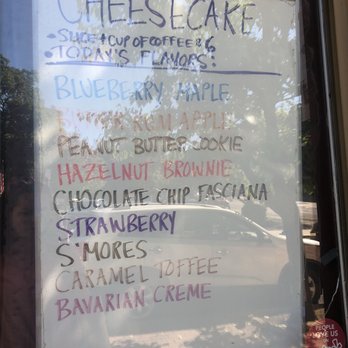 CHEESECAKE
•SLICE + CUP OF COFFEE $6
•TODAY'S FLAVORS:
BLUEBERRY MAPLE
RUM APPLE
PEANUT BUTTER COOKIE
HAZELNUT BROWNIE
CHOCOLATE CHIP FASCIANA
STRAWBERRY
S'MORES
CARAMEL TOFFEE
BAVARIAN CREME
PEOPLE
LOVE US